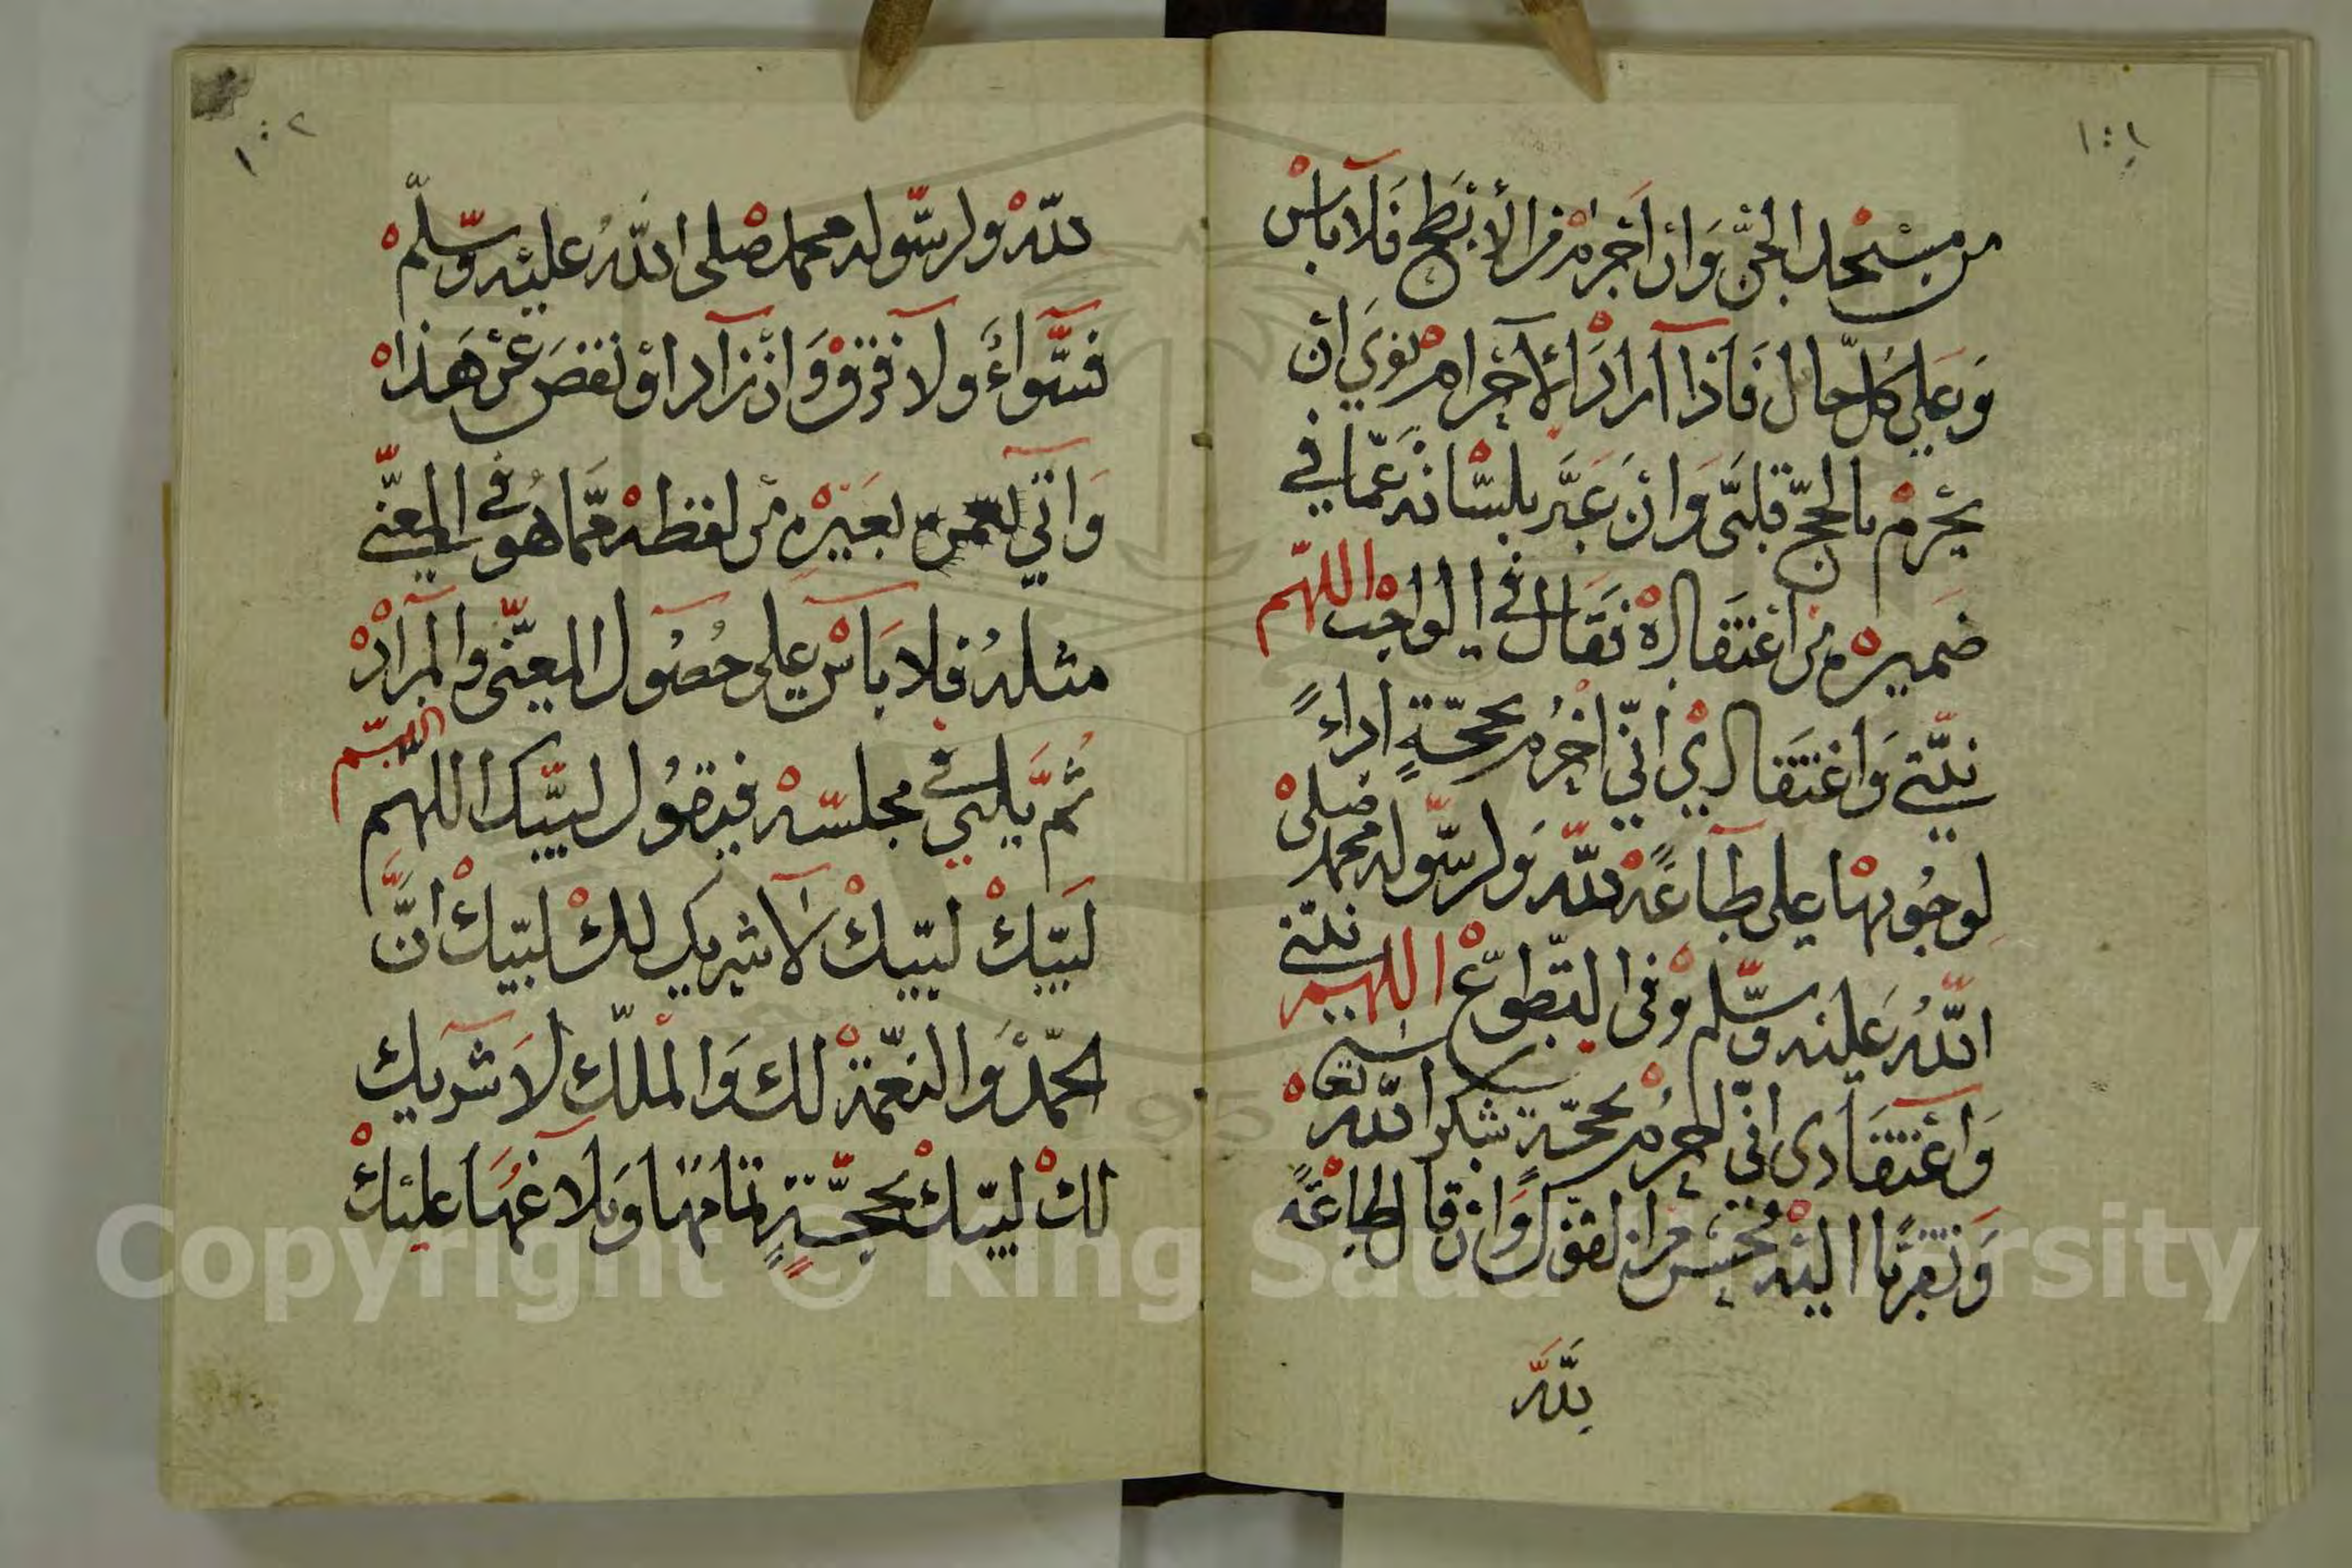 ١٠١
من مسجد الجن وَان اَحْرم من الأبْطح فَلا باس
وَعلى كل حال فَاذا اراد الاحرام نوى ان
يحْرم بالحج قلبى وَان عبَّر بلسانه عمّا في
ضميره من اعتقاده فقال في الواجب اللهم
نيّتي وَاعتقادي انّي احْرم بحجّةٍ اداءً
لوجُوبها على طاعةً لله وَلرسوله محمد صلى
اللهُ عَليه وسلم وفى التطوع اللهم نيّتي
وَاعتقادى انّي احرم بحجّةٍ شكرا لله تعا
وَتقرّبًا اليه فحسن من القول وَان قال طاعةً
لِلّه
١٠٢
لله ولرسوله محمد صلى اللهُ عليه وسلم
فسَواءٌ ولا فرق وَان زاد او نقصَ عن هَذا
وَاتي بغيره من لفظه ممّا هو في المعنى
مثلهُ فلا بَاس على حصُول المعنى والمراد
ثمَّ يلبي في مجلسه فيقوُل لبيك اللهم
لبّيك لبّيك لا شريك لك لبّيك انَّ
الحمْدَ وَالنعْمة لك وَالملك لا شريك
لك لبيك بحجّةٍ تمامهَا وَبلاغهَا عليك
Copyright © King Saud University